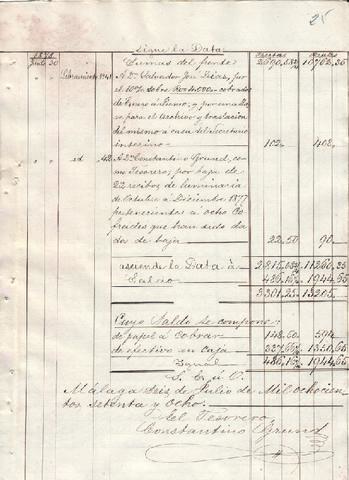 25
Sigue la Data
Pesetas Reales
1878
Junio 30 Sumas del frente 10768,35
Libramiento 141 A Dn. Salvador José Díaz, por
el 10% sobre Rvo 4.020 cobrados
de Enero á Junio, y por
para el archivo y traslación
del mismo á casa del Secretario
interino 102 408
" " id 142 A Dn. Constantino Grund, co-
mo Tesorero, por baja de
22 recibos de luminaria
de Octubre á Diciembre 1877
pertenecientes á ocho Co-
frades que han sido da-
dos de baja 22,50 90
asciende la Data á 11260,35
Saldo 486,16 1944,65
3301,25 13205
Cuyo Saldo se compone:
de papel á cobrar 148,50 594
de efectivo en caja 337,66 1350,65
Igual 486,16 1944,65
S. E. ú O.
Málaga treis de Julio de Mil ochocien-
tos setenta y ocho.
El Tesorero
Constantino Grund